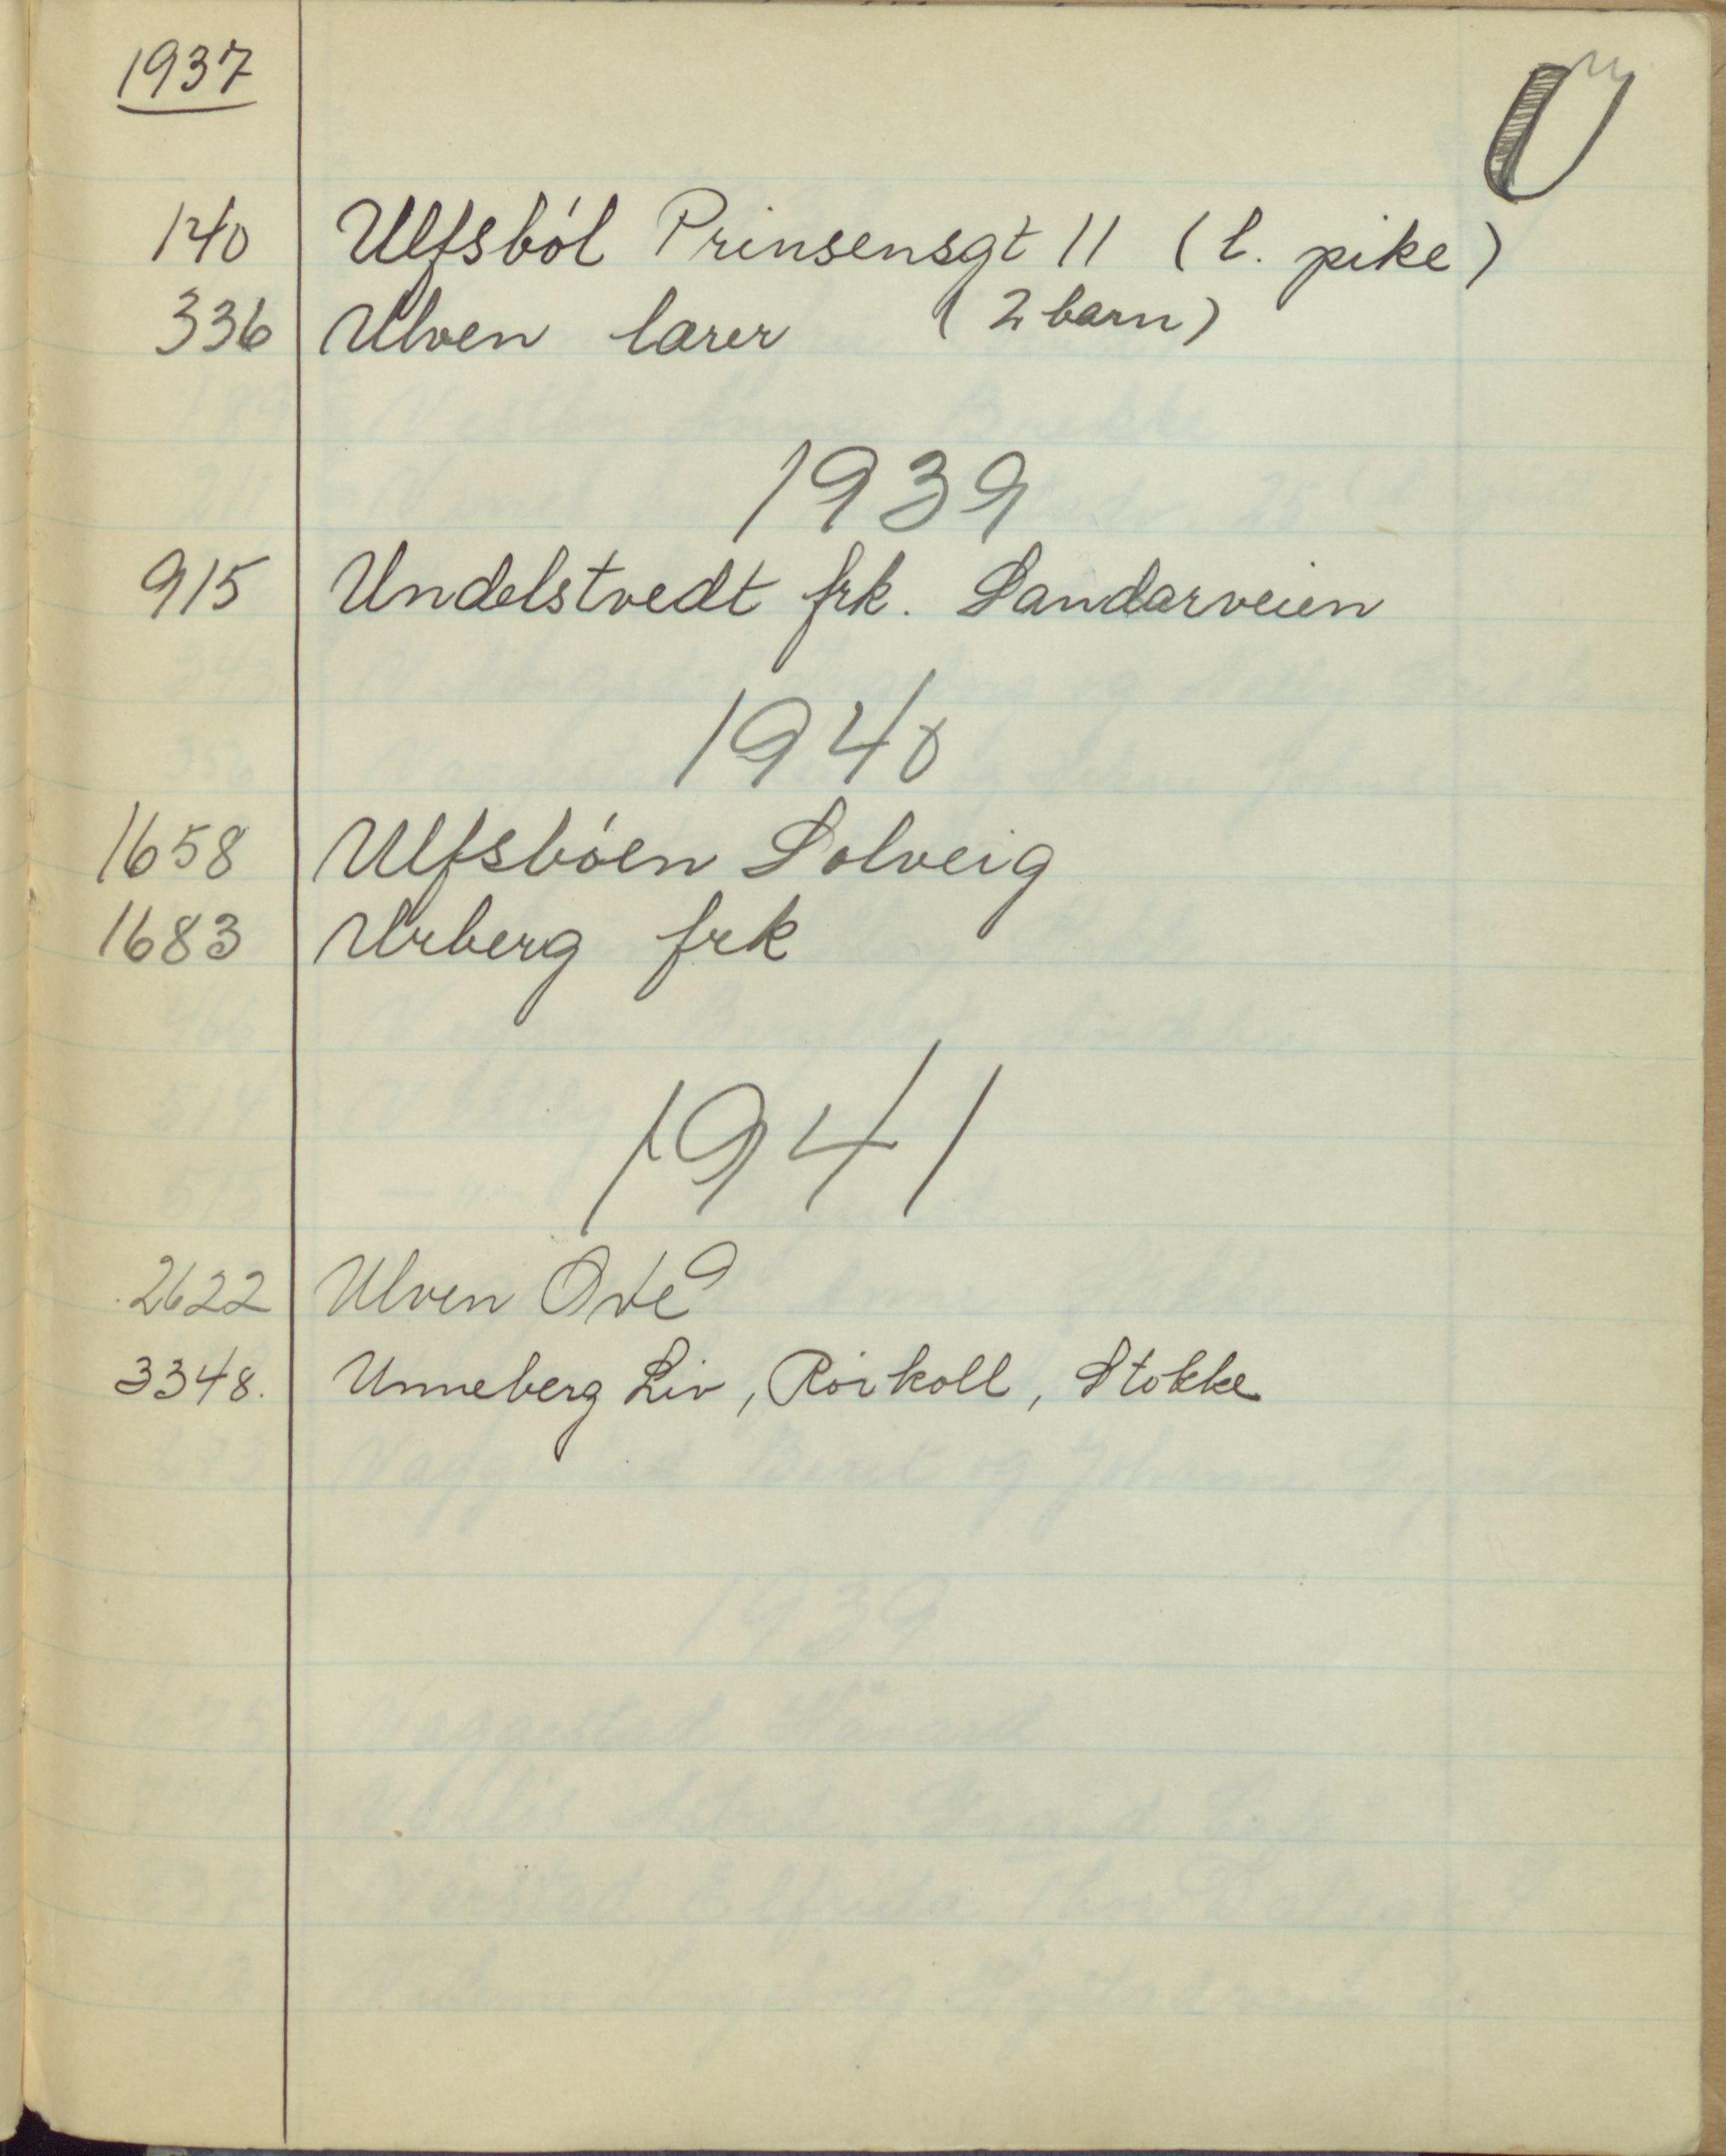 1937
U
140 Ulfsból Prinsensgt 11 (l. pike)
336 Ulven lærer (2 barn)
1939
915 Undelstvedt frk. Sandarveien
1940
1658 Ulfsbóen Solveig
1683 Urberg frk
1941
2622 Ulven Ove
3348. Unneberg Liv, Rórkoll, Stokke